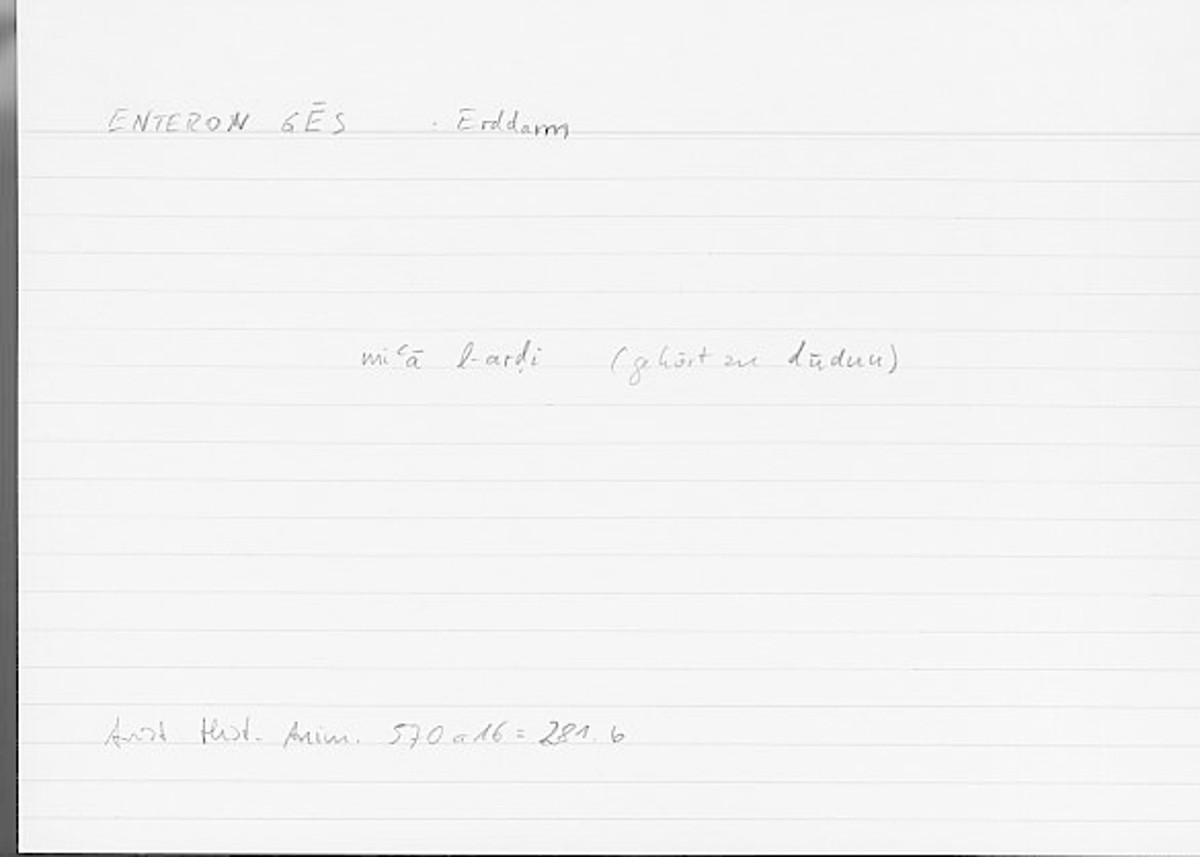 ENTERON GĒS : Erddarm
miʿā l-arḍi (gehört zu dūdun)
Arist Hist. Anim. 570 a 16 = 281. 6